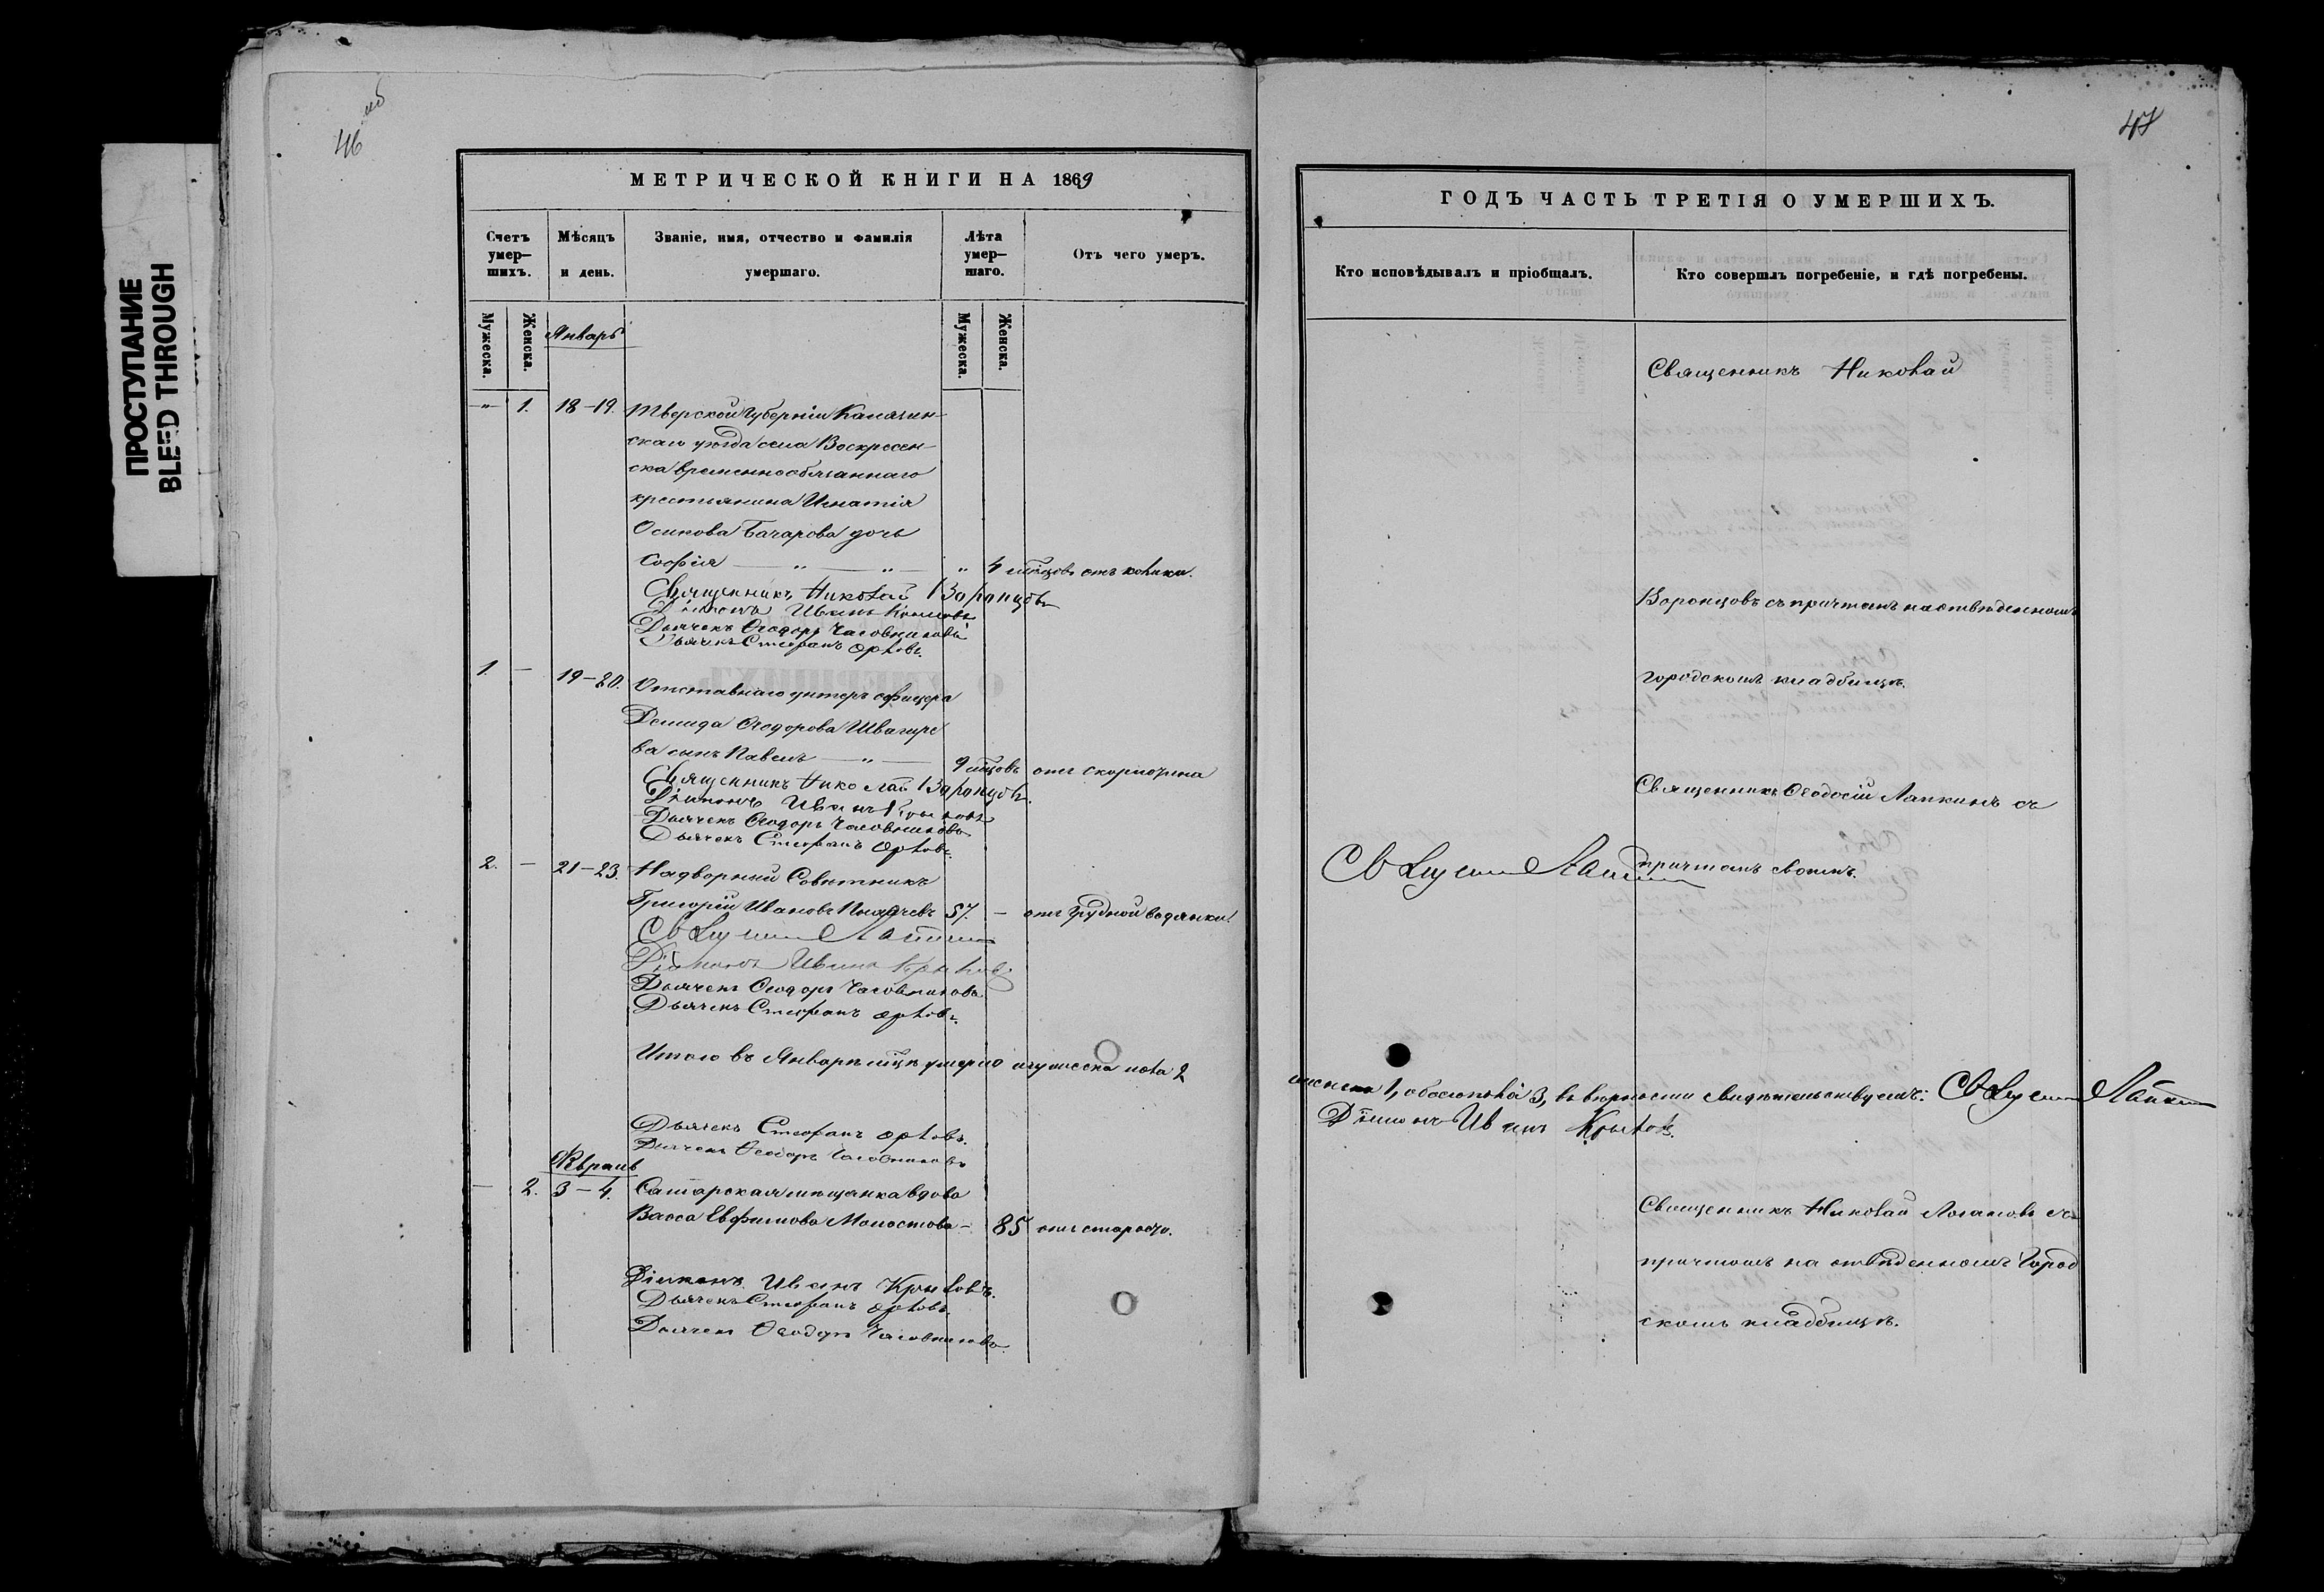 46 об
47
ПРОСТУПАНИЕ
BLEED THROUGH
МЕТРИЧЕСКОЙ КНИГИ НА 1869
Счетъ умер-шихъ.
Мѣсяцъ и день.
Званіе, имя, отчество и фамилія умершаго.
Лѣта умер-шаго.
Отъ чего умеръ.
Мужеска.
Женска.
Январь
Мужеска.
Женска.
„ 1. 18-19. Тверской Губерніи Калязин-
скаго уѣзда села Воскресен-
ска временнообязаннаго
крестьянина Игнатія
Осипова Бачарова дочь
Софія — „ — „ — „ 4 мѣсцовъ отъ колики.
Священникъ Николай Воронцовъ
Діаконъ Иванъ Крыловъ
Дьячекъ Ѳеодоръ Часовниковъ
Дьячекъ Стефанъ Орловъ.
1. — 19-20. Отставнаго унтеръ офицера
Демида Ѳеодорова Швагире
ва сынъ Павелъ — „ — 9 мѣсцовъ отъ скорлотина
Священникъ Николай Воронцовъ.
Діаконъ Иванъ Крыловъ
Дьячекъ Ѳеодоръ Часовниковъ
Дьячекъ Стефанъ Орловъ.
2. — 21-23. Надворный Совѣтникъ
Григорій Ивановъ 57. — отъ грудной водянки.
Священникъ Лапкинъ
Діаконъ Иванъ Крыловъ
Дьячекъ Ѳеодоръ Часовниковъ
Дьячекъ Стефанъ Орловъ.
Итого въ Январѣ мцѣ умерло мужеска пола 2
Дьячекъ Стефанъ Орловъ.
Дьячекъ Ѳеодоръ Часовниковъ
Февраль
— 2. 3-4. Самарская мѣщанка вдова
Васса Евфимова — 85 отъ старости.
Діаконъ Иванъ Крыловъ.
Дьячекъ Стефанъ Орловъ.
Дьячекъ Ѳеодоръ Часовниковъ
ГОДЪ ЧАСТЬ ТРЕТІЯ О УМЕРШИХЪ.
Кто исповѣдывалъ и пріобщалъ.
Кто совершлъ погребеніе, и гдѣ погребены.
Священникъ Николай
Воронцовъ съ причтомъ на отвѣденномъ
городскомъ кладбищѣ.
Священникъ Ѳеодосій Лапкинъ съ
Священникъ Лапкинъ
причтомъ своимъ.
женска 1, обоего пола 3, въ вѣрности свидѣтельствуемъ: Священникъ Лапкинъ
Діаконъ Иванъ Крыловъ.
Священникъ Николай съ
причтомъ на отвѣденномъ Город
скомъ кладбищѣ.